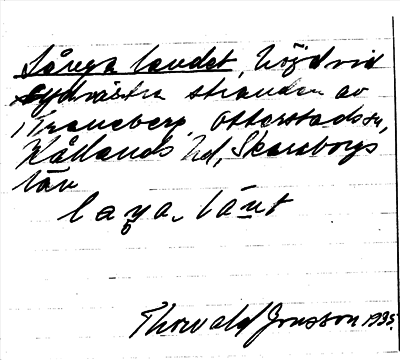 Långa landet, höjd vid
sydvästra stranden av
Traneberg, Otterstads sn,
Kållands hd, Skaraborgs
län
Thorvald Jonsson 1935.